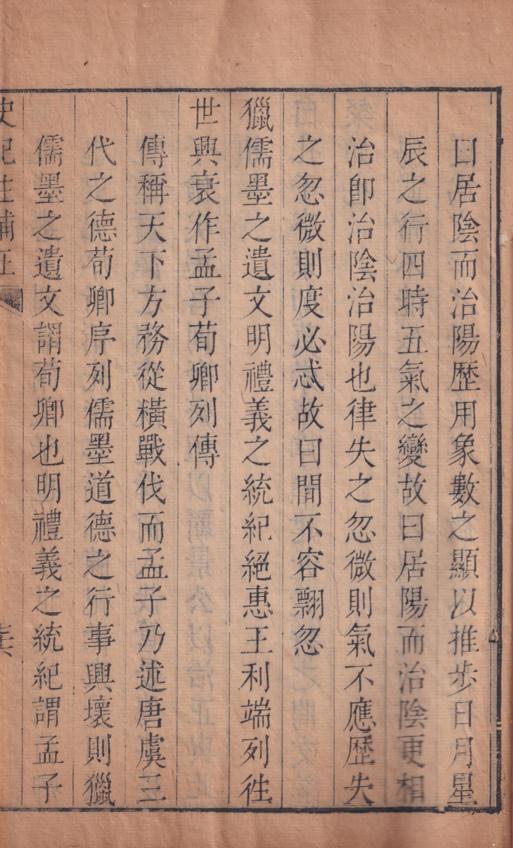 曰居陰而治陽歷用象數之顯以推步日月星
辰之行四時五氣之變故曰居陽而治陰更相
治卽治陰治陽也律失之忽微則氣不應歷失
之忽微則度必忒故曰間不容翲忽
獵儒墨之遺文明禮義之統紀絕惠王利端列徃
世興衰作孟子荀卿列傳
傳稱天下方務從橫戰伐而孟子乃述唐虞三
代之德荀卿序列儒墨道德之行事興壞則獵
儒墨之遺文謂荀卿也明禮義之統紀謂孟子
史記注補正